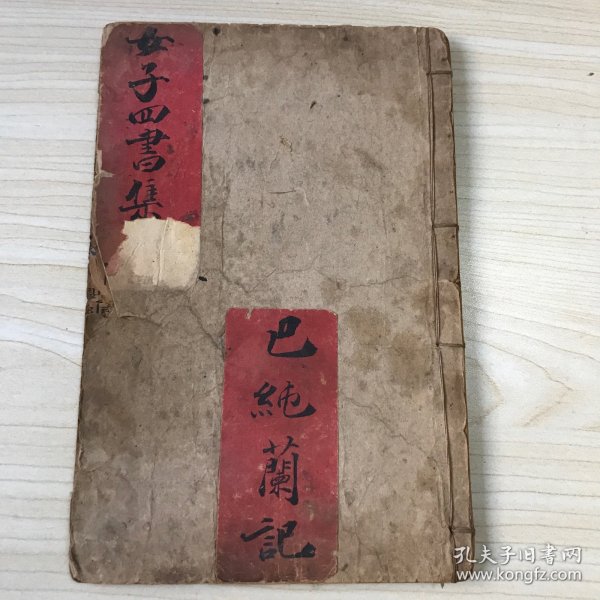 女子四書集
巴純蘭記
孔夫子旧書网
www.kongfz.com